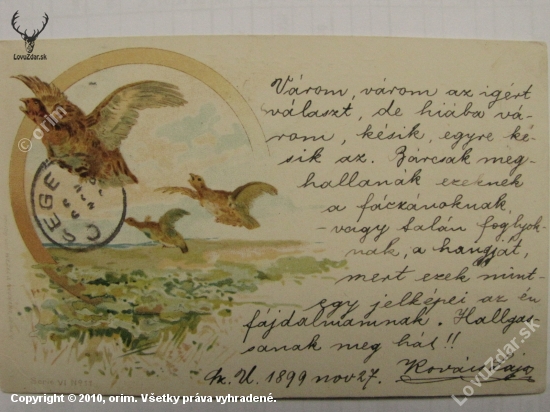 LovuZdar.sk
Várom, várom az igért
választ, de hiába vá-
rom, késik, egyre ké-
sik az. Bárcsak meg-
hallanák ezeknek
a fáczánoknak,
- vagy talán foglyok-
nak, a hangját,
mert ezek mint-
egy jelképei az én
fájdalmamnak. Hallgas-
sanak meg hát!!
1899 nov 27.
© orim
© orim
LovuZdar.sk
Copyright © 2010, orim. Všetky práva vyhradené.